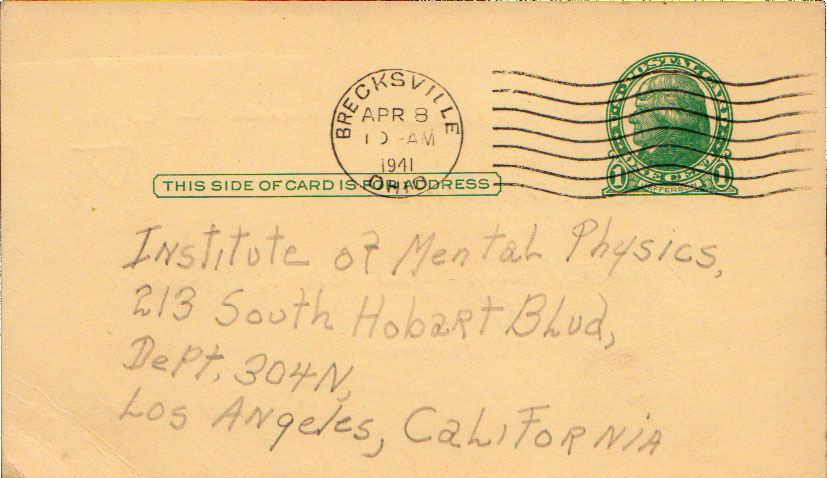 BRECKSVILLE
APR 8
10 - AM
1941
OHIO
U.S. POSTAL CARD
ONE CENT
1 JEFFERSON 1
THIS SIDE OF CARD IS FOR ADDRESS
Institute of Mental Physics,
213 South Hobart Blvd,
Dept. 304N,
Los Angeles, California